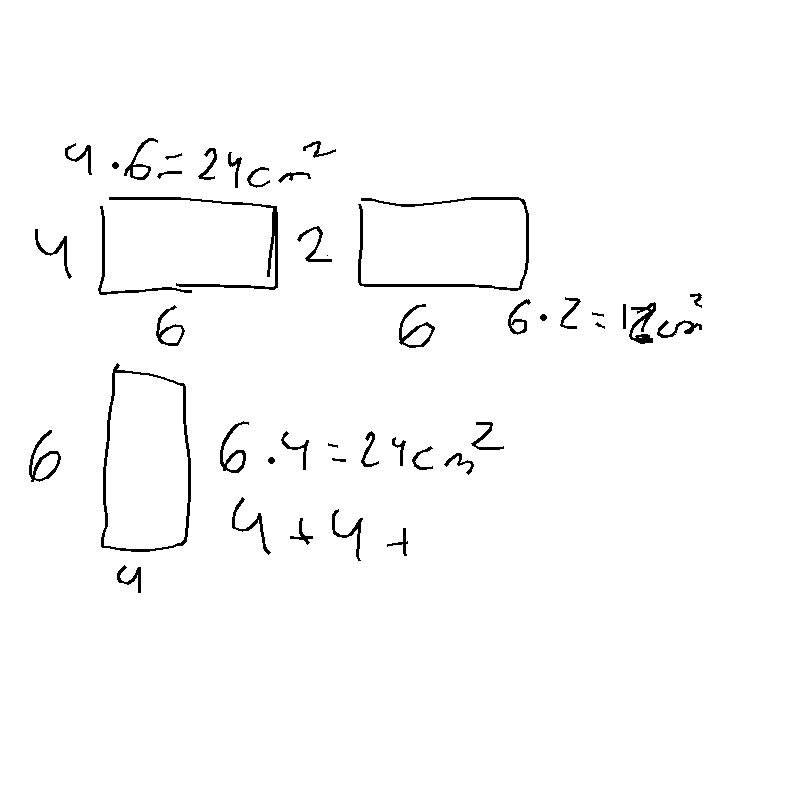 4 · 6 = 24cm²
4
2
6
6
6 · 2 = 12cm²
6
6 · 4 = 24cm²
4 + 4 +
4